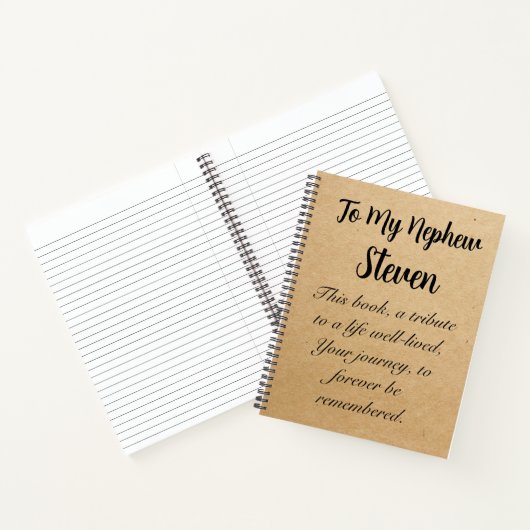 To My Nephew
Steven
This book, a tribute
to a life well-lived,
Your journey, to
forever be
remembered.